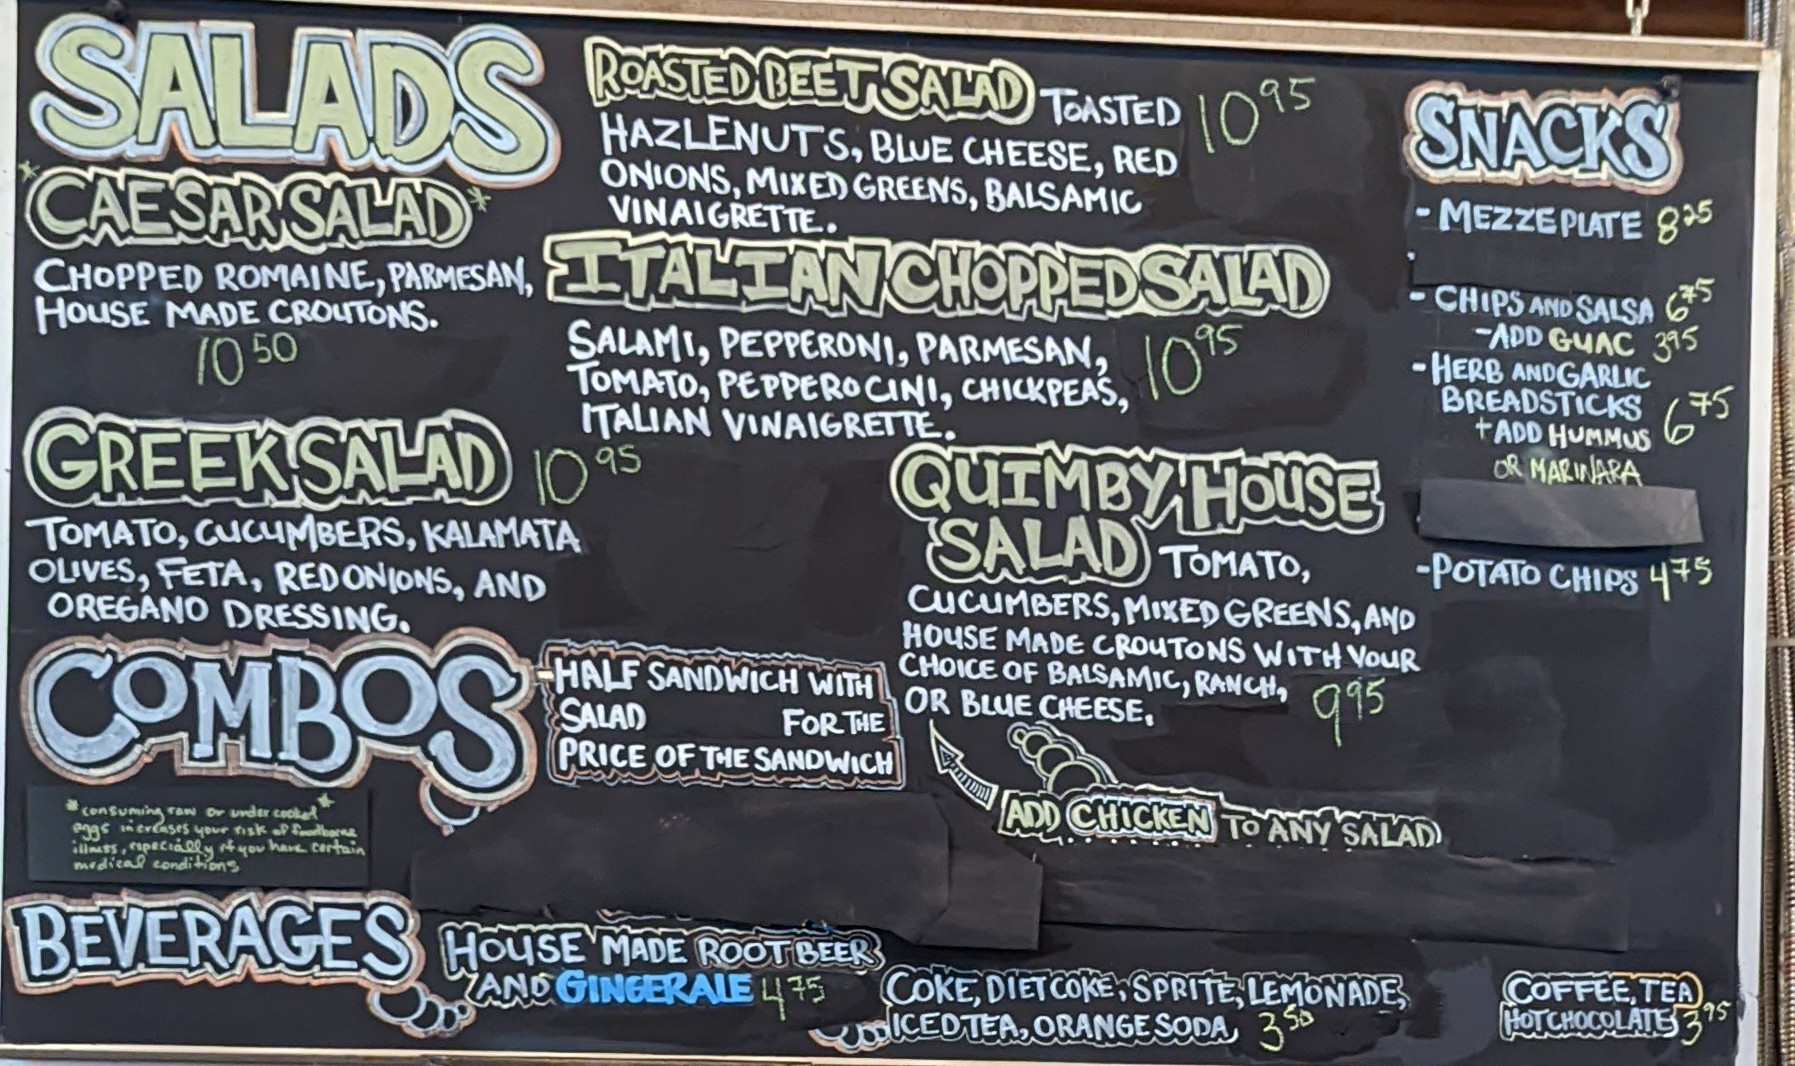 SALADS
*CAESAR SALAD*
CHOPPED ROMAINE, PARMESAN,
HOUSE MADE CROUTONS.
10 50
GREEK SALAD 10 95
TOMATO, CUCUMBERS, KALAMATA
OLIVES, FETA, RED ONIONS, AND
OREGANO DRESSING.
ROASTED BEET SALAD TOASTED 10 95
HAZLENUTS, BLUE CHEESE, RED
ONIONS, MIXED GREENS, BALSAMIC
VINAIGRETTE.
ITALIAN CHOPPED SALAD
SALAMI, PEPPERONI, PARMESAN, 10 95
TOMATO, PEPPEROCINI, CHICKPEAS,
ITALIAN VINAIGRETTE.
QUIMBY HOUSE
SALAD TOMATO,
CUCUMBERS, MIXED GREENS, AND
HOUSE MADE CROUTONS WITH YOUR
CHOICE OF BALSAMIC, RANCH,
OR BLUE CHEESE. 9 95
ADD CHICKEN TO ANY SALAD
SNACKS
- MEZZE PLATE 8 25
- CHIPS AND SALSA 6 75
- ADD GUAC 3 95
- HERB AND GARLIC
BREADSTICKS 6 75
+ ADD HUMMUS
OR MARINARA
- POTATO CHIPS 4 75
COMBOS
- HALF SANDWICH WITH
SALAD FOR THE
PRICE OF THE SANDWICH
*consuming raw or under cooked*
eggs increases your risk of foodborne
illness, especially if you have certain
medical conditions
BEVERAGES
HOUSE MADE ROOT BEER
AND GINGERALE 4 75
COKE, DIET COKE, SPRITE, LEMONADE,
ICED TEA, ORANGE SODA, 3 50
COFFEE, TEA
HOT CHOCOLATE 3 95